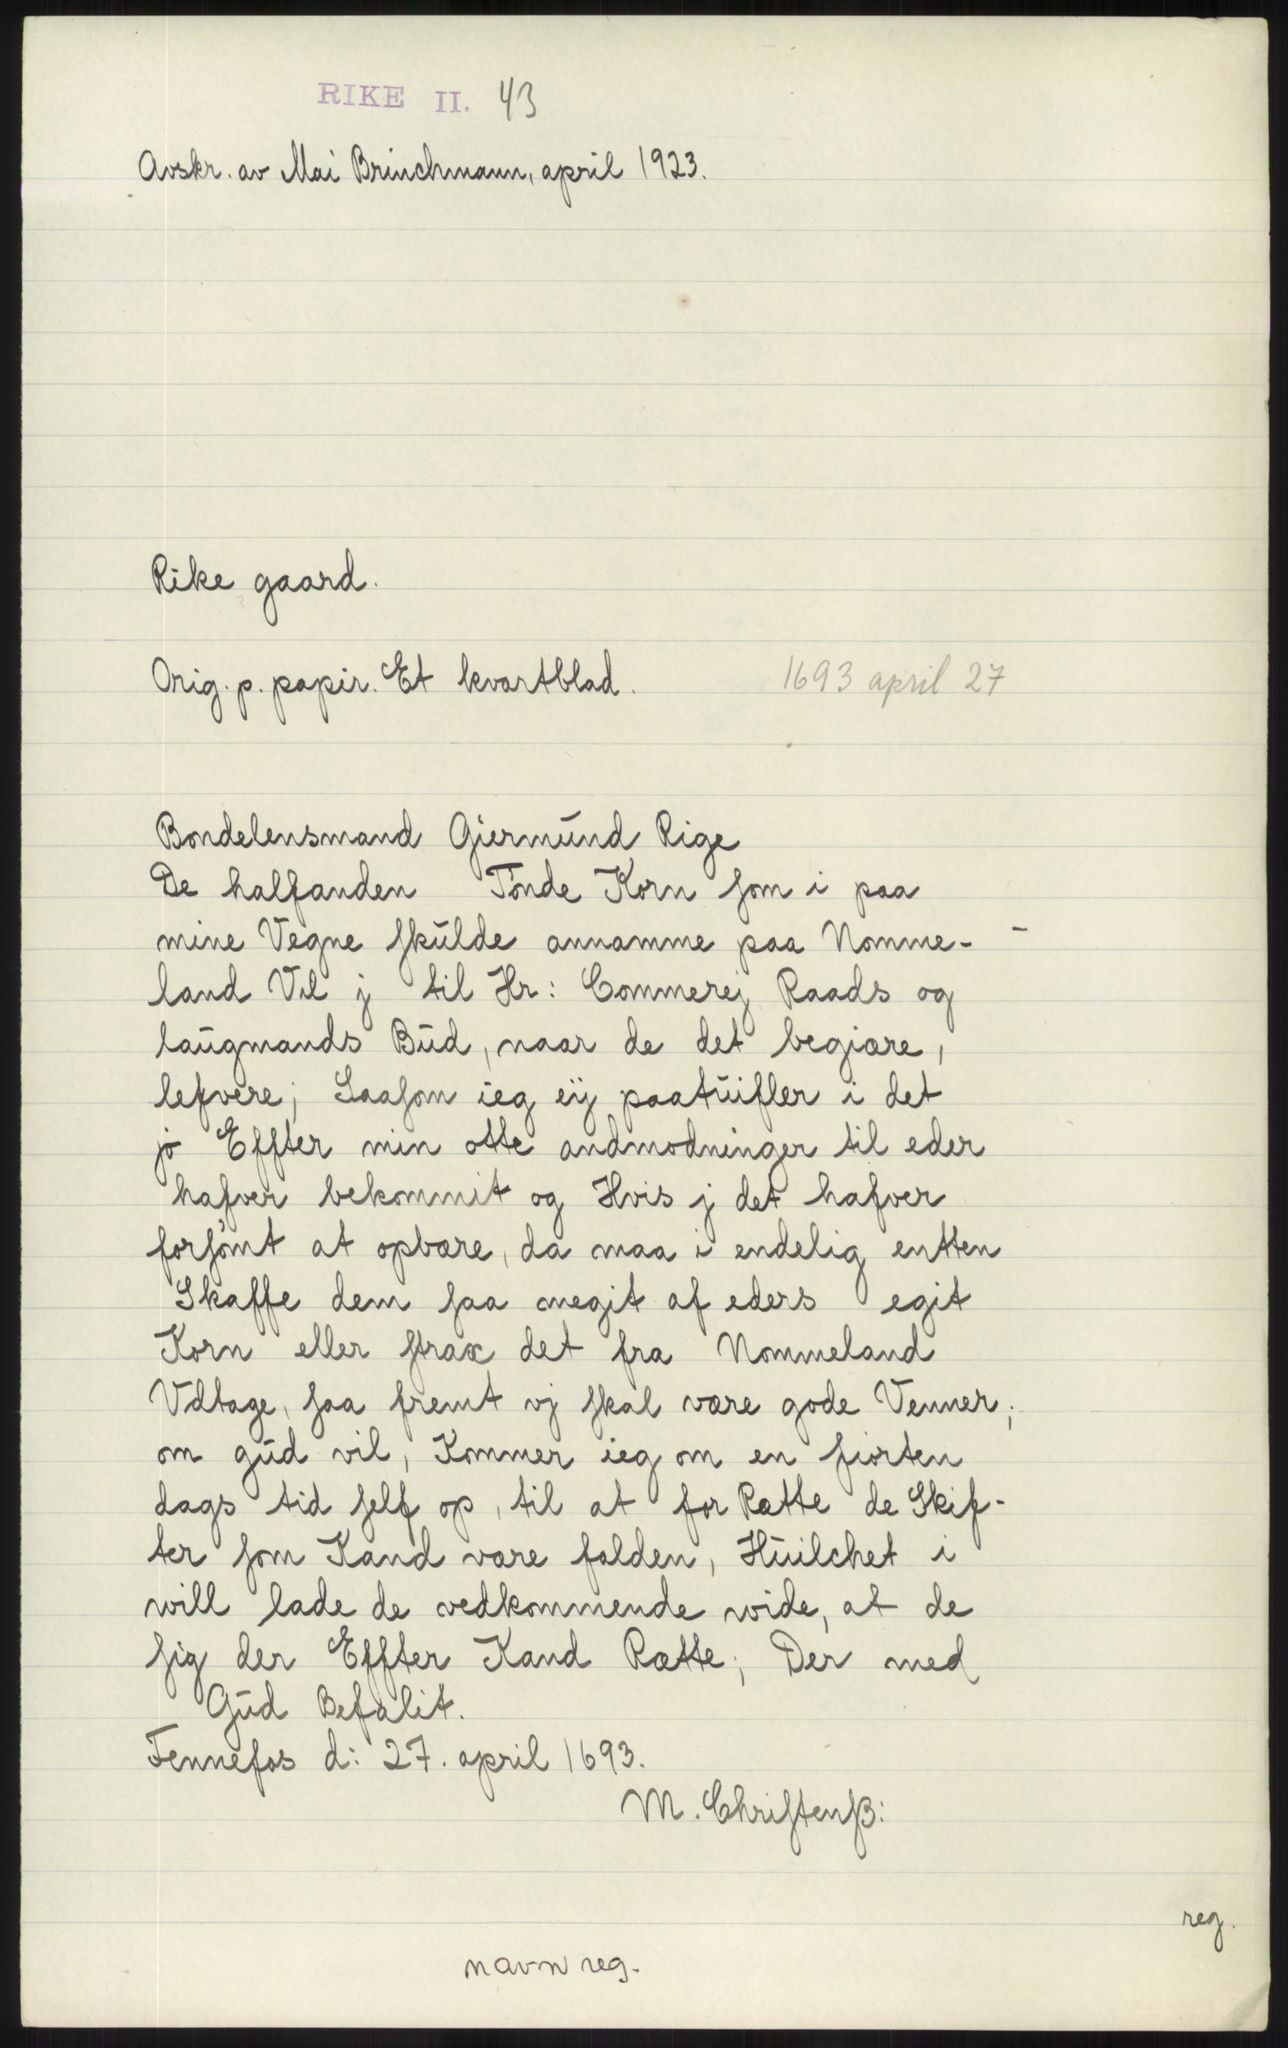 RIKE II. 43
Avskr. av Mai Brinchmann, april 1923.
Rike gaard.
Orig. p. papir. Et kvartblad. 1693 april 27
Bondelensmand Giermund Rige
De halfanden Tönde Korn som i paa
mine Vegne skulde annamme paa Nomme-
land Vil j til Hr: Commerej Raads og
laugmands Bud, naar de det begiære,
lefvere; Saasom ieg eij paatuifler i det
jo Effter min otte andmodninger til eder
hafver bekommit og Hvis j det hafver
forsömt at opbære, da maa i endelig entten
Skaffe dem saa megit af eders egit
Korn eller strax det fra Nommeland
Vdtage, saa fremt vj skal være gode Venner;
om gud vil, Kommer ieg om en fiorten
dags tid self op, til at for Rette de Skif-
ter som Kand være falden, Huilchet i
will lade de vedkommende wide, at de
sig der Effter Kand Rætte; Der med
Gud Befalit.
Fennefos d: 27. april 1693.
M. Christenß:
reg.
navn reg.